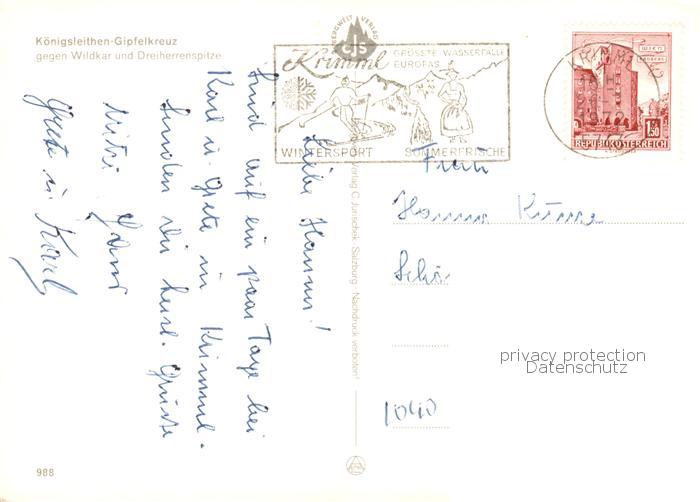 Königsleithen-Gipfelkreuz
gegen Wildkar und Dreiherrenspitze
BERGWELT VERLAG
CJS
Krimml
GRÖSSTE WASSERFÄLLE
EUROPAS
WINTERSPORT SOMMERFRISCHE
1.50
REPUBLIK ÖSTERREICH
Liebe Hanna!
Sind auf ein paar Tage bei
Karl u Grete in Krimml.
Senden dir herzl. Grüße
Mitzi
Grete u Karl
Frau
Hanna
1040
Verlag C. Jurischek, Salzburg - Nachdruck verboten!
privacy protection
Datenschutz
988